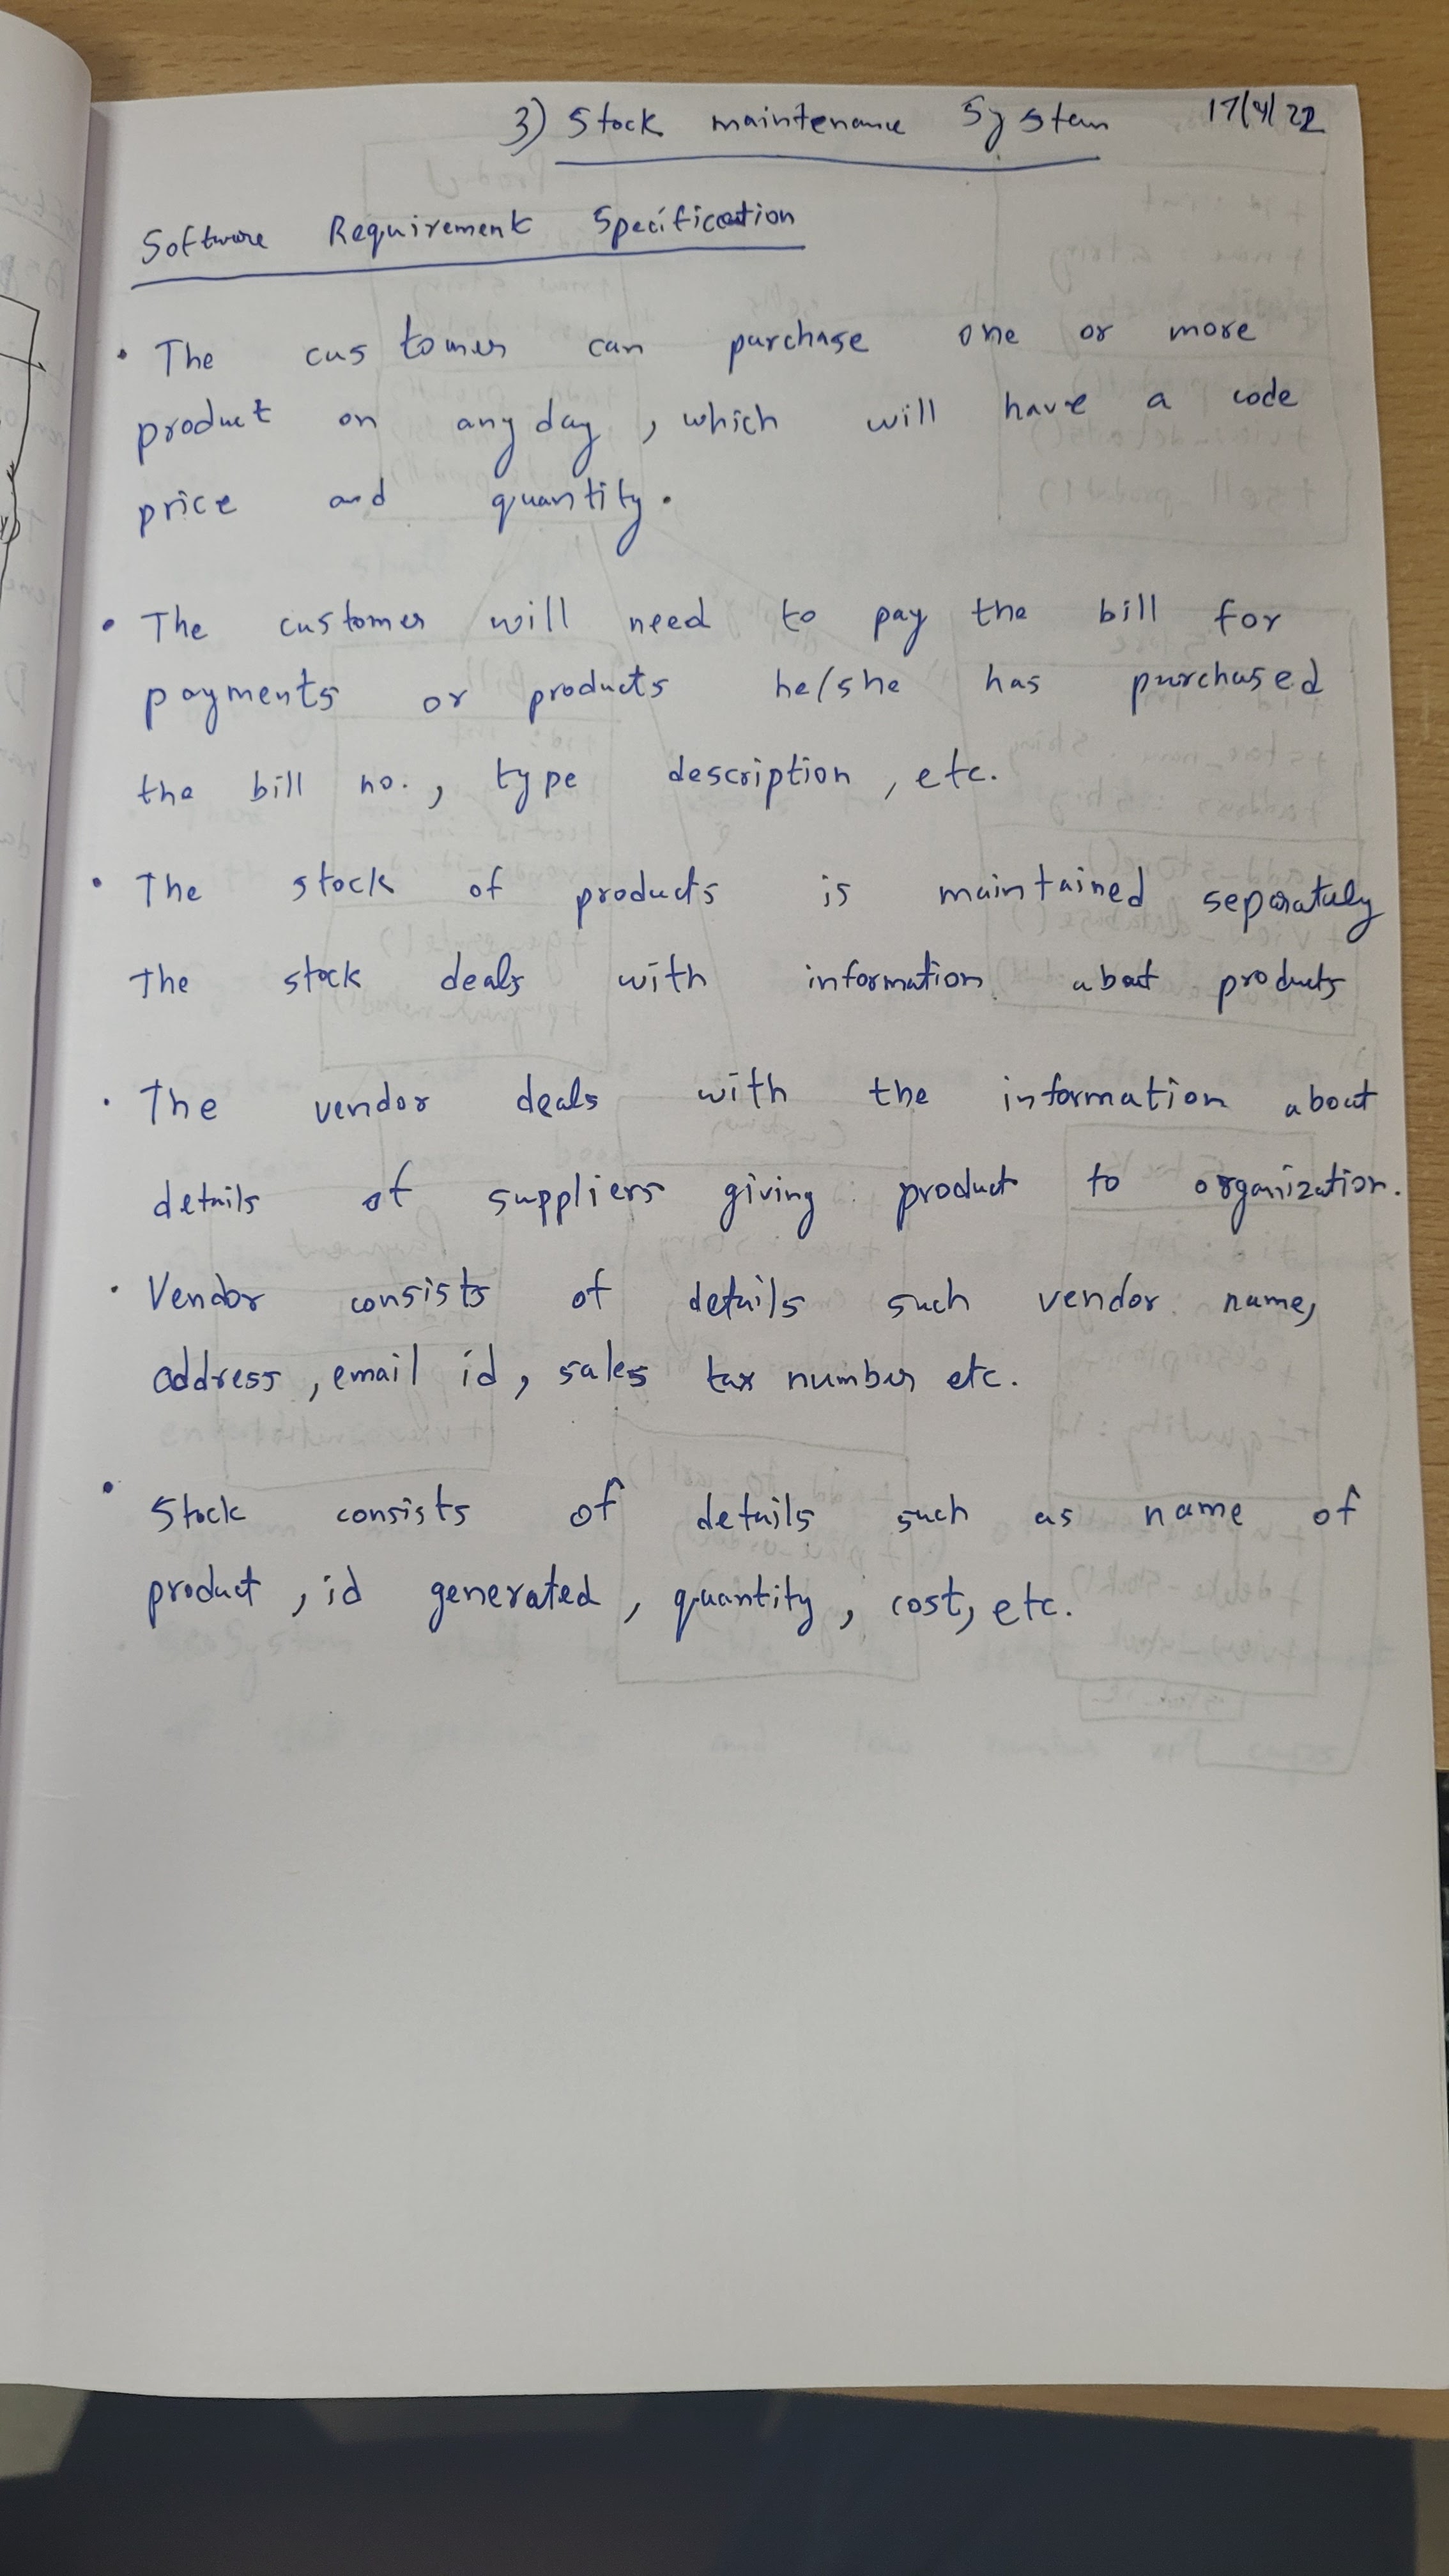 3) Stock maintenance System 17/4/22
Software Requirement Specification
• The customer can purchase one or more
product on any day, which will have a code
price and quantity.
• The customer will need to pay the bill for
payments or products he/she has purchased
the bill no., type description, etc.
• The stock of products is maintained separately
The stock deals with information about products
• The vendor deals with the information about
details of suppliers giving product to organization.
• Vendor consists of details such vendor name,
address, email id, sales tax number etc.
• Stock consists of details such as name of
product, id generated, quantity, cost, etc.